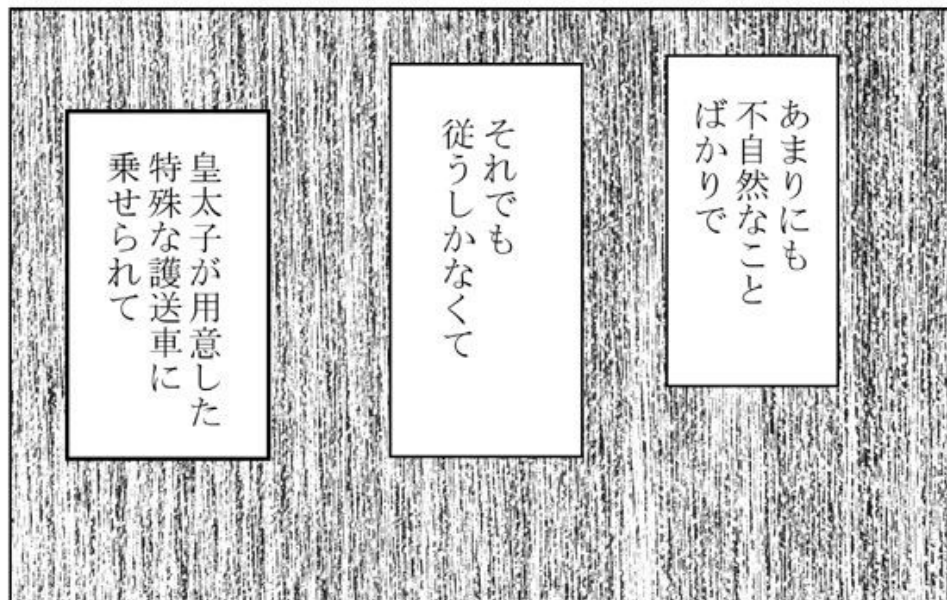 あまりにも
不自然なこと
ばかりで
それでも
従うしかなくて
皇太子が用意した
特殊な護送車に
乗せられて